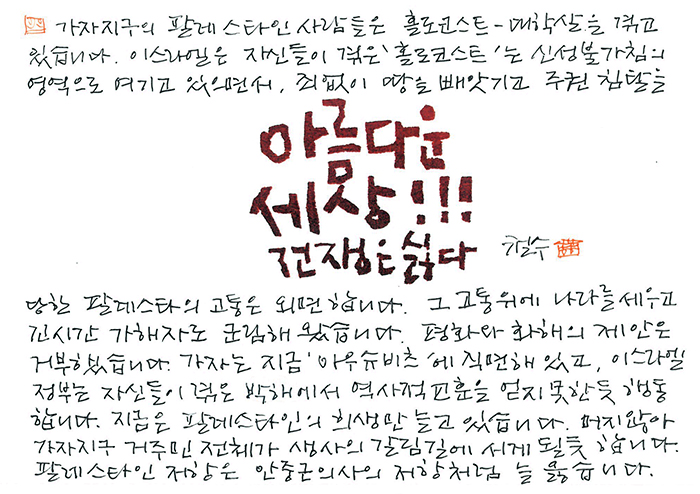 가자지구의 팔레스타인 사람들은 홀로코스트-대학살을 겪고
있습니다. 이스라엘은 자신들이 겪은 '홀로코스트'는 신성불가침의
영역으로 여기고 있으면서, 죄없이 땅을 빼앗기고 주권 침탈을
아름다운
세상!!!
전쟁은 싫다
철수
당한 팔레스타의 고통은 외면합니다. 그 고통위에 나라를 세우고
긴시간 가해자로 군림해 왔습니다. 평화와 화해의 제안은
거부했습니다. 가자는 지금 '아우슈비츠'에 직면해 있고, 이스라엘
정부는 자신들이 겪은 박해에서 역사적 교훈을 얻지 못한듯 행동
합니다. 지금은 팔레스타인의 희생만 늘고 있습니다. 머지않아
가자지구 거주민 전체가 생사의 갈림길에 서게 될듯 합니다.
팔레스타인 저항은 안중근의사의 저항처럼 늘 옳습니다.